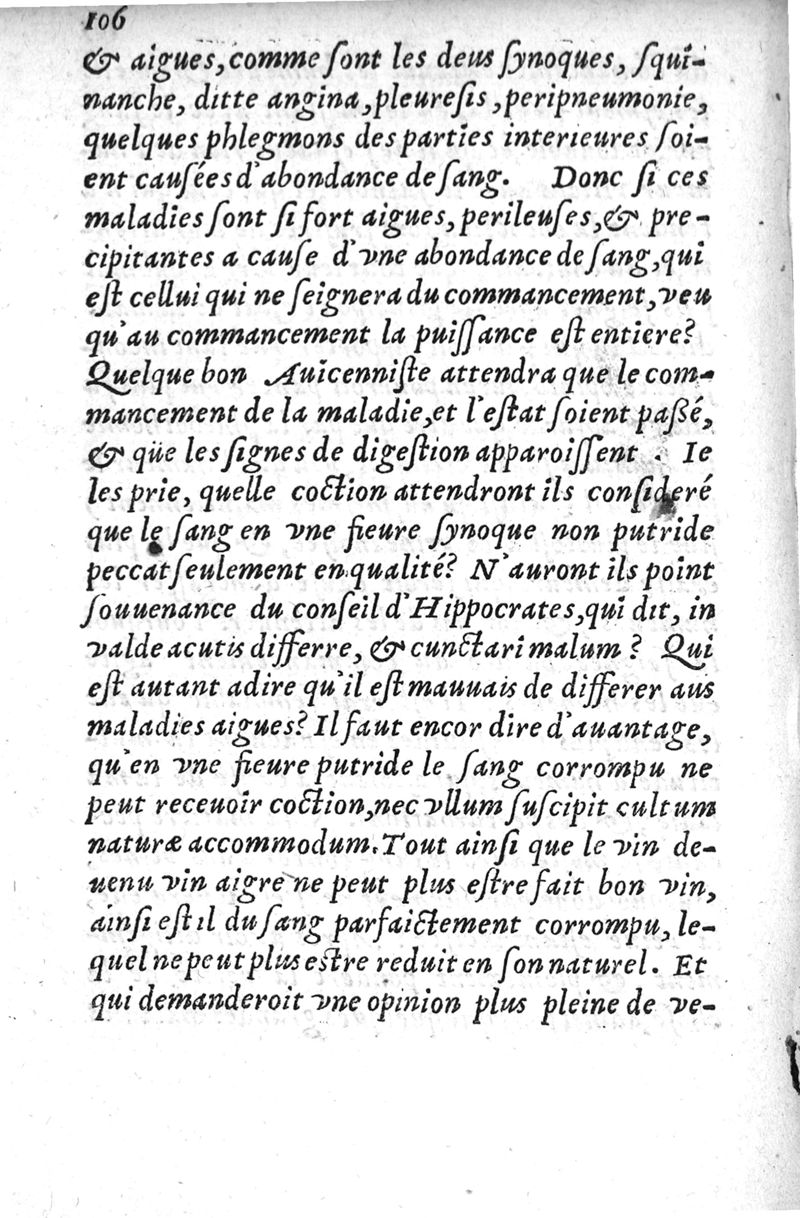 106
& aigues, comme ſont les deus ſynoques, ſqui-
nanche, ditte angina, pleureſis, peripneumonie,
quelques phlegmons des parties interieures ſoi-
ent cauſées d'abondance de ſang. Donc ſi ces
maladies ſont ſi fort aigues, perileuſes, & pre-
cipitantes a cauſe d'vne abondance de ſang, qui
eſt cellui qui ne ſeignera du commancement, veu
qu'au commancement la puiſſance eſt entiere?
Quelque bon Auicenniſte attendra que le com-
mancement de la maladie, et l'eſtat ſoient paßé,
& que les ſignes de digeſtion apparoiſſent . Ie
les prie, quelle coction attendront ils conſideré
que le ſang en vne fieure ſynoque non putride
peccat ſeulement en qualité? N'auront ils point
ſouuenance du conſeil d'Hippocrates, qui dit, in
valde acutis differre, & cunctari malum ? Qui
eſt autant adire qu'il eſt mauuais de differer aus
maladies aigues? Il faut encor dire d'auantage,
qu'en vne fieure putride le ſang corrompu ne
peut receuoir coction, nec vllum ſuſcipit cultum
naturæ accommodum. Tout ainſi que le vin de-
uenu vin aigre ne peut plus eſtre fait bon vin,
ainſi eſt il du ſang parfaictement corrompu, le-
quel ne peut plus eſtre reduit en ſon naturel. Et
qui demanderoit vne opinion plus pleine de ve-